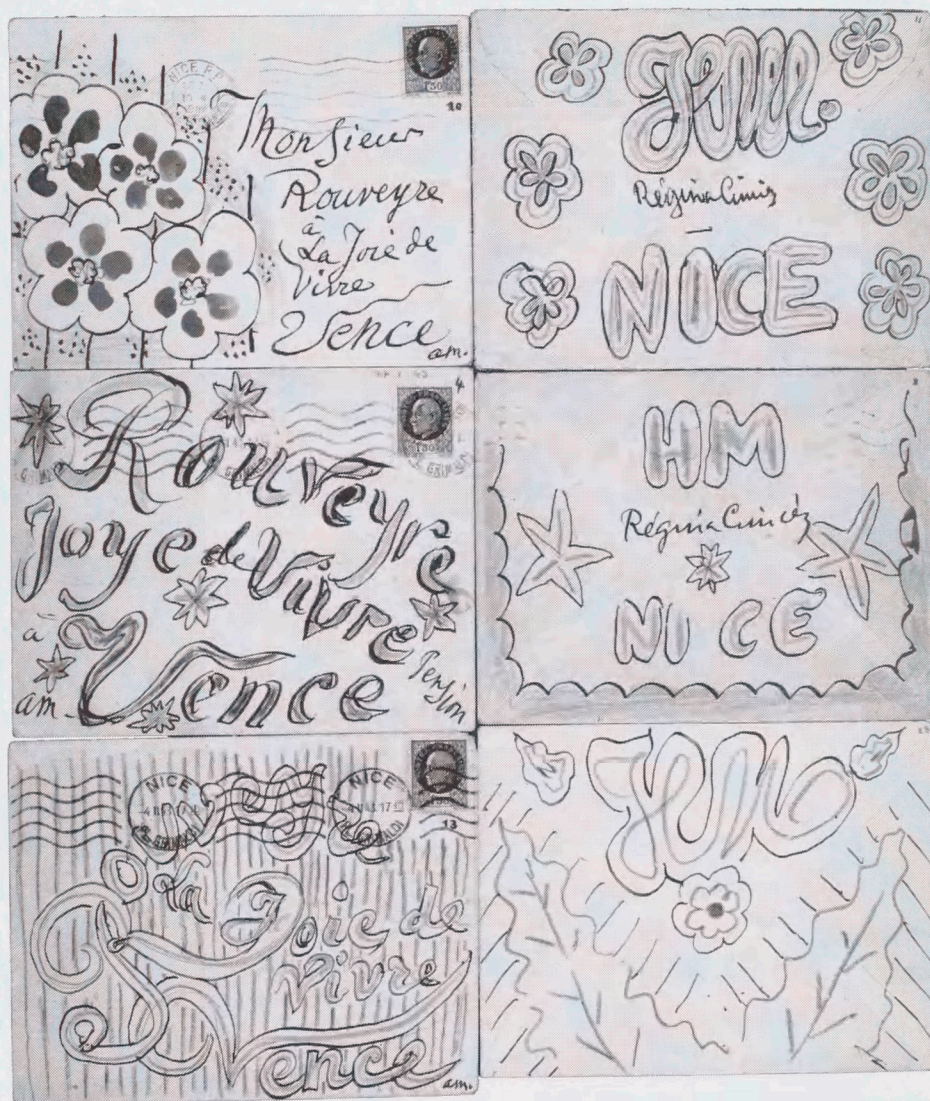 NICE R.P.
1F50
10
Monsieur
Rouveyre
à
La Joie de
Vivre
Vence
a.m.
11
HM.
Régina Cimiez
NICE
1F50
4
Rouveyre
Joye de Vivre
à
Vence
am.
M
HM
Régina Cimiez
NICE
NICE
NICE
13
à la Joie de
Vivre
Vence
a.m.
HM